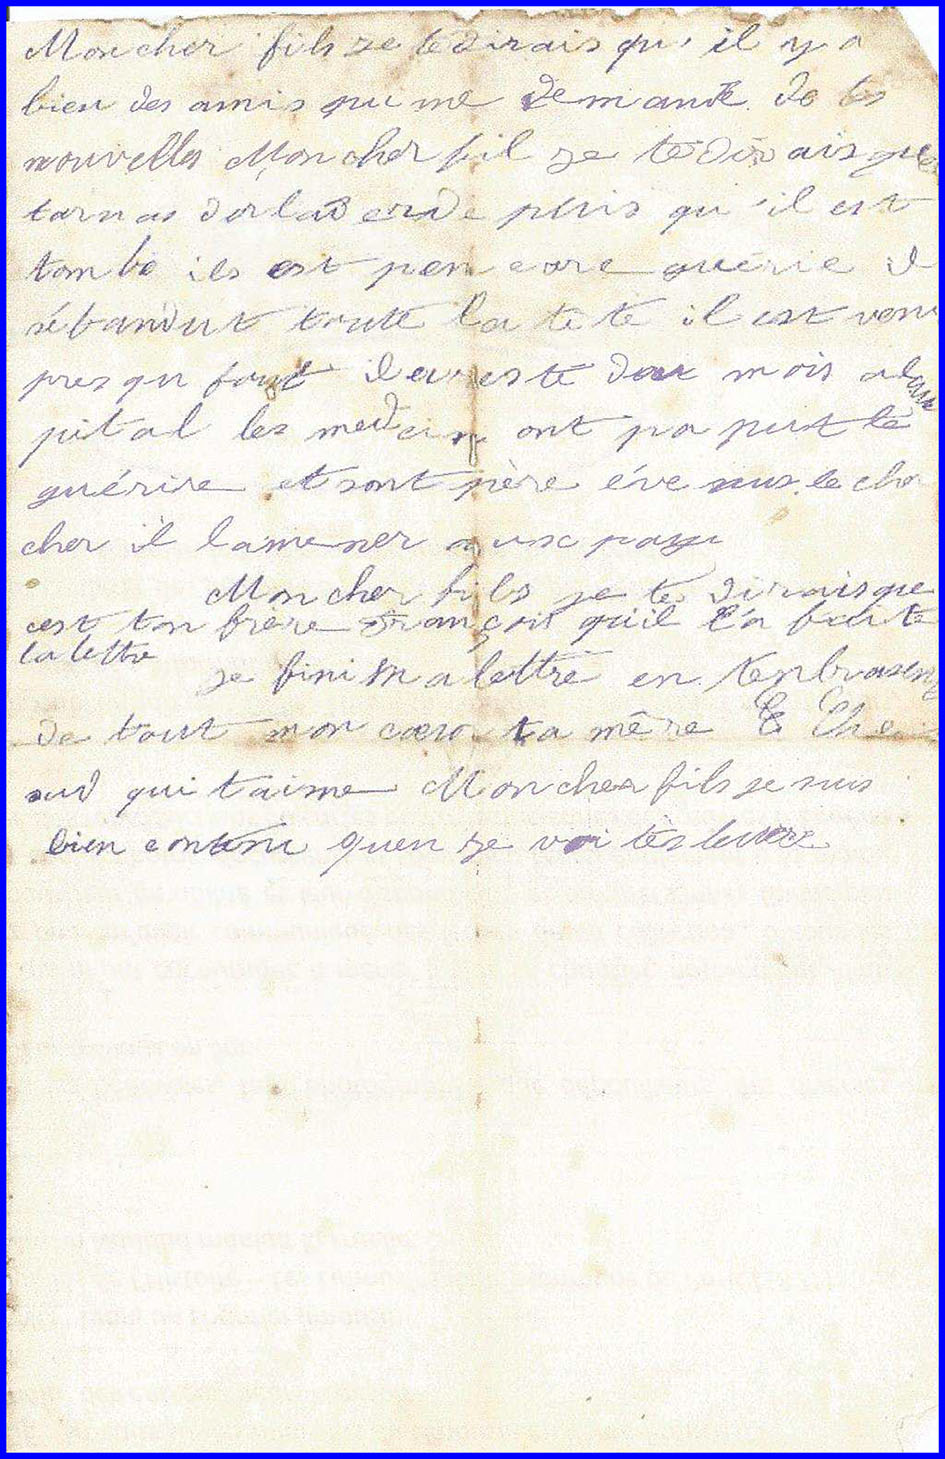 Mon cher fils je te dirais qu'il y a
bien des amis qui me demande de tes
nouvelles Mon cher fil je te dirais que
plus qu'il est
tombe il est pen core guérie il
toute la tete il est venu
presqu fout il est reste deux mois a lau
pital les medcin ont pa put le
guérire et sont père éve nus le cha
cher il lamener aux pays
Mon cher fils je te dirais que
cest ton frère François quil l'a faite
la lettre
je fini ma lettre en tenbrasent
de tout mon cœur ta mère
qui taime Mon cher fils je suis
bien contenu quen je voi tes lettre